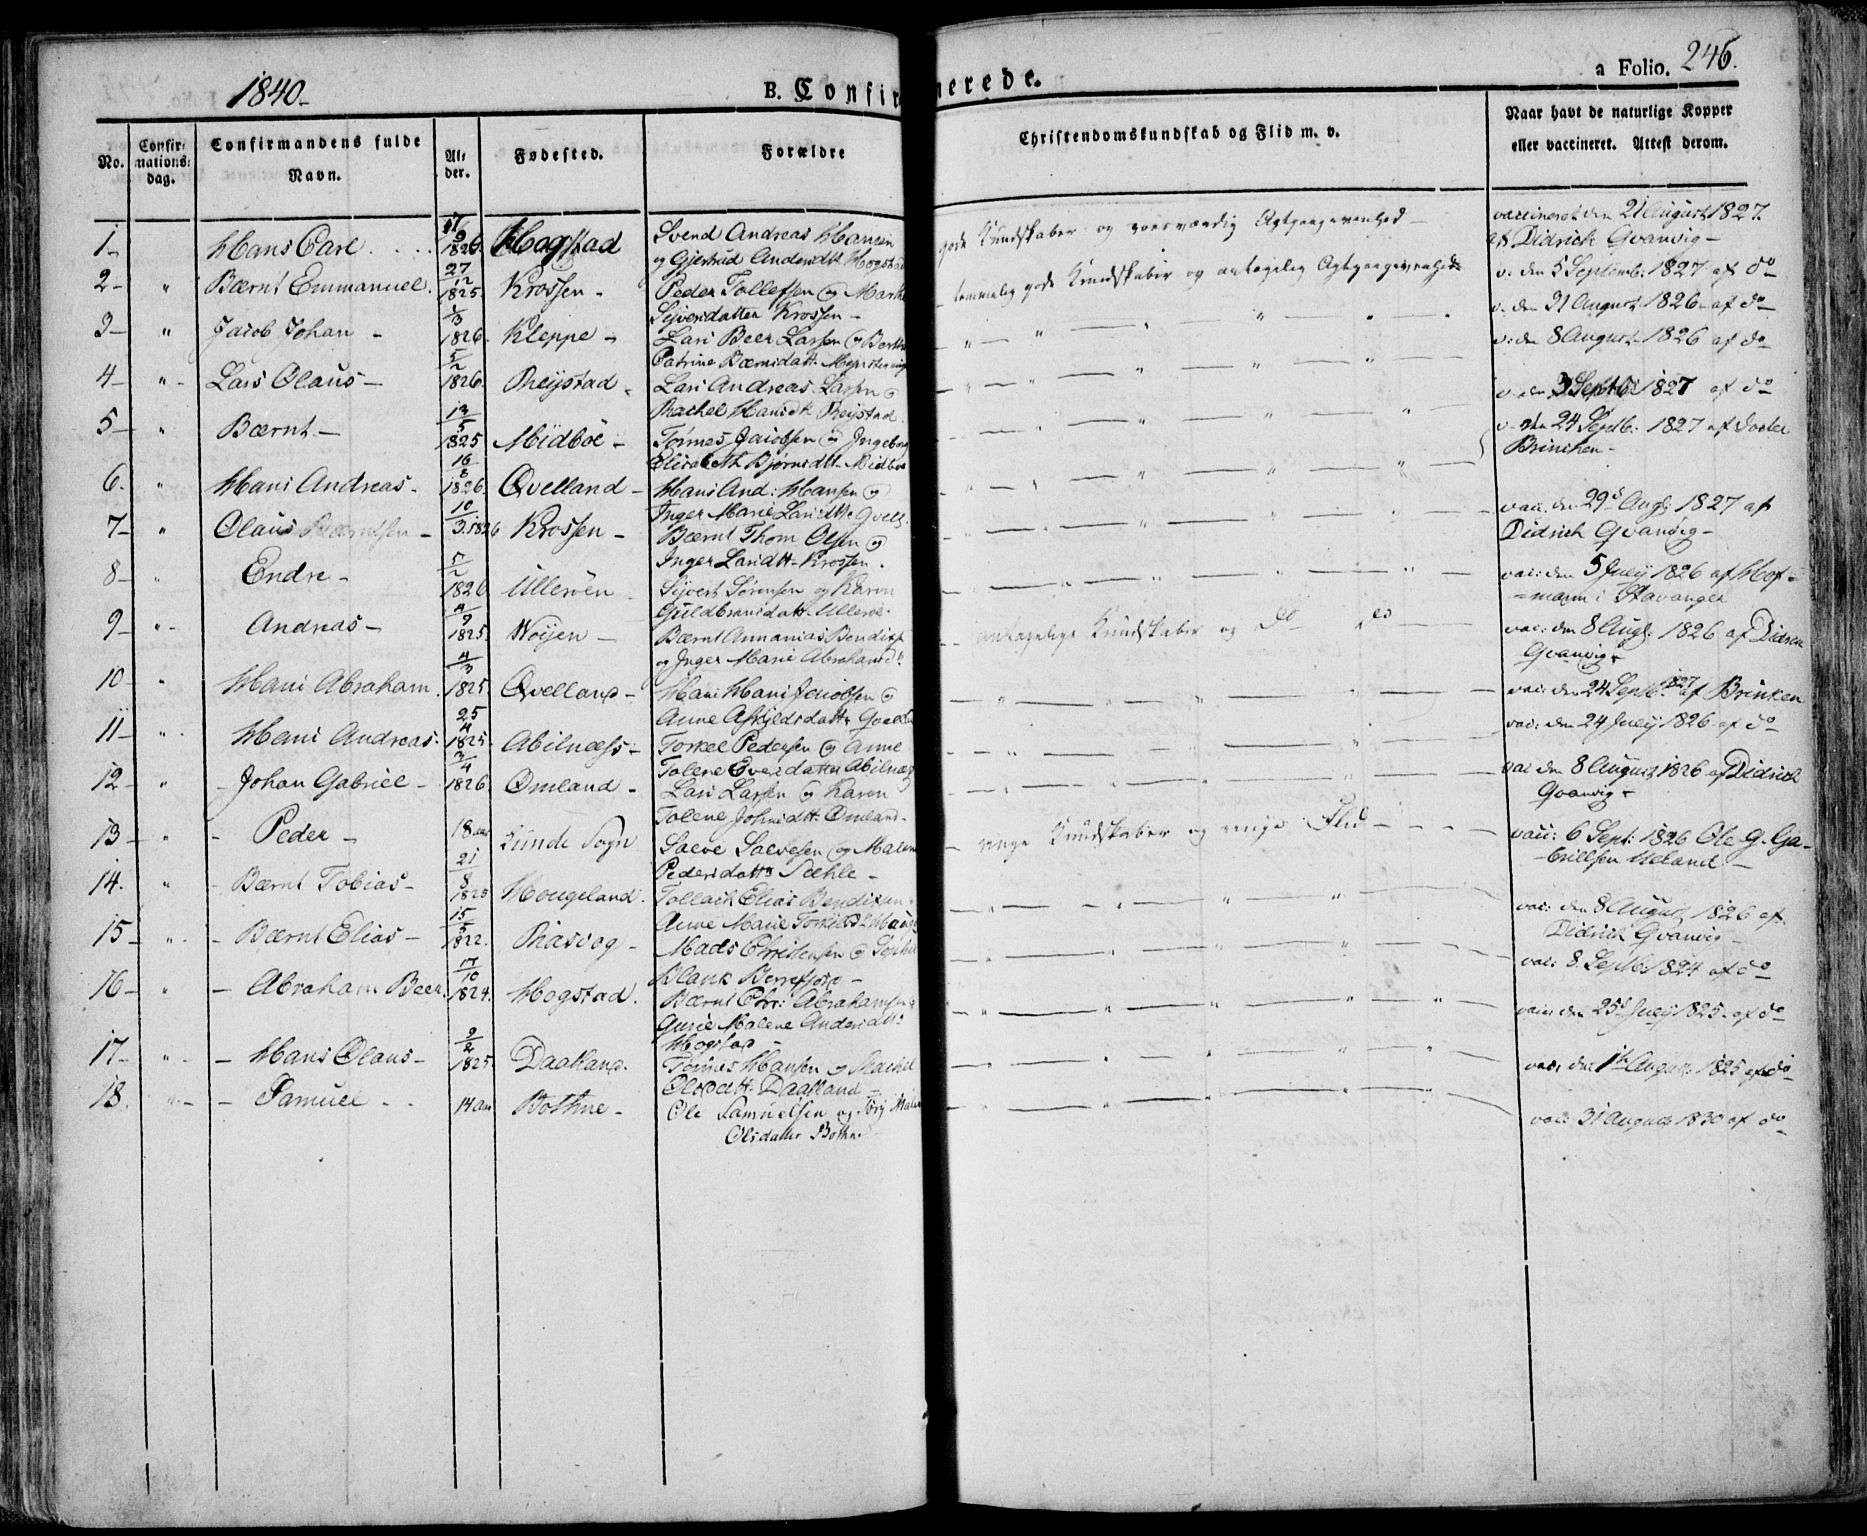 1840.
B. Confirmerede.
a Folio. 246.
No.
Confir-
mations-
dag.
Confirmandens fulde
Navn.
Al-
der.
Fødested.
Forældre
Christendomskundskab og Flid m. v.
Naar havt de naturlige Kopper
eller vaccineret. Attest derom.
1 Hans Carl 1826. Hogstad Svend Andreas Hansen gode Kundskaber og Agtpaagivenhed vaccineret den 21 August 1827
og Gjertrud Andersdtr Hogstad af Didrich Qvanvig
2 " Bærnt Emmanuel 27/12 1825. Krossen Peder Tollefsen og Marthe temmelig gode Kundskaber og antagelig Agtpaagivenhed v. den 5 Septemb. 1827 af do
Sijversdatter Krossen
3 " Jacob Johan 1/3 1826. Kleppe Lars Beer Larsen og Berthe v. den 21 August 1826 af do
Catrine Bærnsdatt:
4 " Lars Olaus 5/2 1826. Reijstad Lars Andreas Larsen og v. den 8 August 1826 af do
Rachel Hansdtr Reijstad
5 " Bærnt 13/5 1825 Midbøe Tønnes Jacobsen og Ingeborg v. den Septb 1827 af do
Elisabeth Bjørnsdtr Midbøe
6. " Hans Andreas 16/8 1826. Qvelland Hans And: Hansen og v. den 24 Septb: 1827 af
Inger Marie Larsdtr Qvell. Brincken
7 " Olaus Bærntsen 10/3 1826 Krossen Bærnt Thom Olsen og vac: den 29 Aug: 1827 af
Inger Larsdtr Krossen. Didrich Qvanvig
8 Endre 5/2 1826 Ullerøen Sijvert Sørensen og Karen vac: den 5 July 1826 af Hof-
Guldbrandsdatt. Ullerø. =mann i Stavanger
9 " Andreas 4/9 1825. Woijen Bærnt Annanias Bendixs antagelige Kundskaber og do do vac: den 8 Aug: 1826 af Didrich
og Inger Marie Abrahamsd: Qvanvig
10 " Hans Abraham 4/3 1825. Qvelland Hans Hans Jacobsen og vac: den 24 Septb. 1827 af Brinken
Anne Askjeldsdatt:
11 " Hans Andreas 25/4 1825. Abilnæss Torkel Pedersen og Anne vac: den 24 July 1826 af do
Tolene Abilnæs
12 " Johan Gabriel 2/4 1826 Omland Lars Larsen og Karen vac den 8 August 1826 af Didrich
Tolene Johnsdtr Omland Qvanvig
13 " Peder 18 aar Lunde Sogn Salve Salvesen og Malene ringe Kundskaber og ringe Flid vac: 6 Sept: 1826 Ole G. Ga-
Pedersdatt: brielsen Ueland.
14. " Bærnt Tobias 21/8 1825 Hougeland. Tollack Elias Bendixen vac: den 8 August 1826 af
Anne Marie Didrich Qvanvig
15 " Bærnt Elias 15/5 1822. Rasvog Mads Christensen og Sophie vac: 8 Septb: 1824 af do
Blank Berrefjord
16 " Abraham Beer 17/10 1824. Hogstad. Bærnt Chr: Abrahamsen vac: den 25 July 1825 af do
Gurie Malene Andersdtr
Hogstad
17 " Hans Olaus 9/2 1825. Daatland. Tønnes Hansen og Rachel vac: den August 1825 af do
Olsdtr Daatland
18. " Samuel 14 aar Bothne Ole Samuelsen og Malene vac: 31 August 1830 af do
Olsdatter Bothne